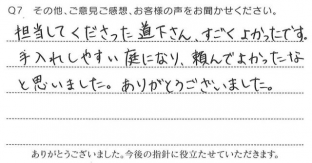 Q7 その他、ご意見ご感想、お客様の声をお聞かせください。
担当してくださった道下さん、すごくよかったです。
手入れしやすい庭になり、頼んでよかったな
と思いました。ありがとうございました。
ありがとうございました。今後の指針に役立たせていただきます。